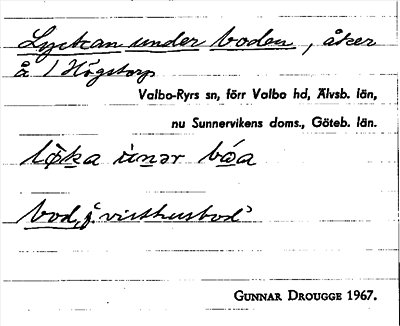 Lyckan under boden, åker
å 1 Högstorp
Valbo-Ryrs sn, förr Valbo hd, Älvsb. län,
nu Sunnervikens doms., Göteb. län.
bod, 'visthusbod'
GUNNAR DROUGGE 1967.